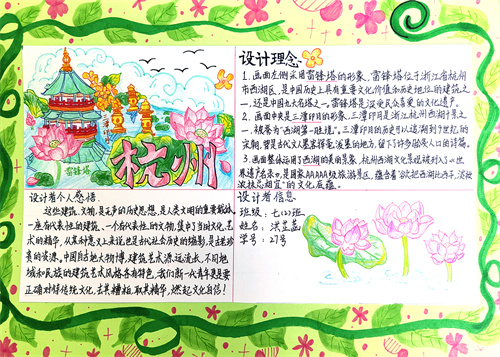 雷锋塔
三潭印月
杭州
设计理念
1. 画面左侧采用雷锋塔的形象,雷锋塔位于浙江省杭州
市西湖区,是中国历史上具有重要文化价值和历史地位的建筑之
一,还是中国九大名塔之一,雷锋塔是深受民众喜爱的文化遗产。
2. 画面中央是三潭印月的形象,三潭印月是浙江杭州西湖十景之
一,被誉为“西湖第一胜境”。三潭印月的历史可以追溯到
宋朝,曾是古代文人墨客挥毫泼墨的地方,留下许多脍炙人口的诗篇。
3. 画面整体运用了西湖的美丽景象,杭州西湖文化景观被列入《世
界遗产名录》,是国家AAAAA级旅游景区,蕴含着“欲把西湖比西子,淡妆
浓抹总相宜”的文化底蕴。
设计者个人感悟:
这些建筑、文物,是无声的历史思想,是人类文明的重要载体,
一座有代表性的建筑、一个有代表性的文物,集中了当时文化、艺
术的精华,从某种意义上来说,它是当代社会历史的缩影,是the珍
贵的资源,中国自古地大物博,建筑艺术源远流长,不同地
域和民族的建筑艺术风格各有特色,我们新一代青年更是要
正确对待传统文化,去其糟粕,取其精华,燃起文化自信!
设计者信息
班级:七(2)班
姓名:洪芷蕊
学号:27号